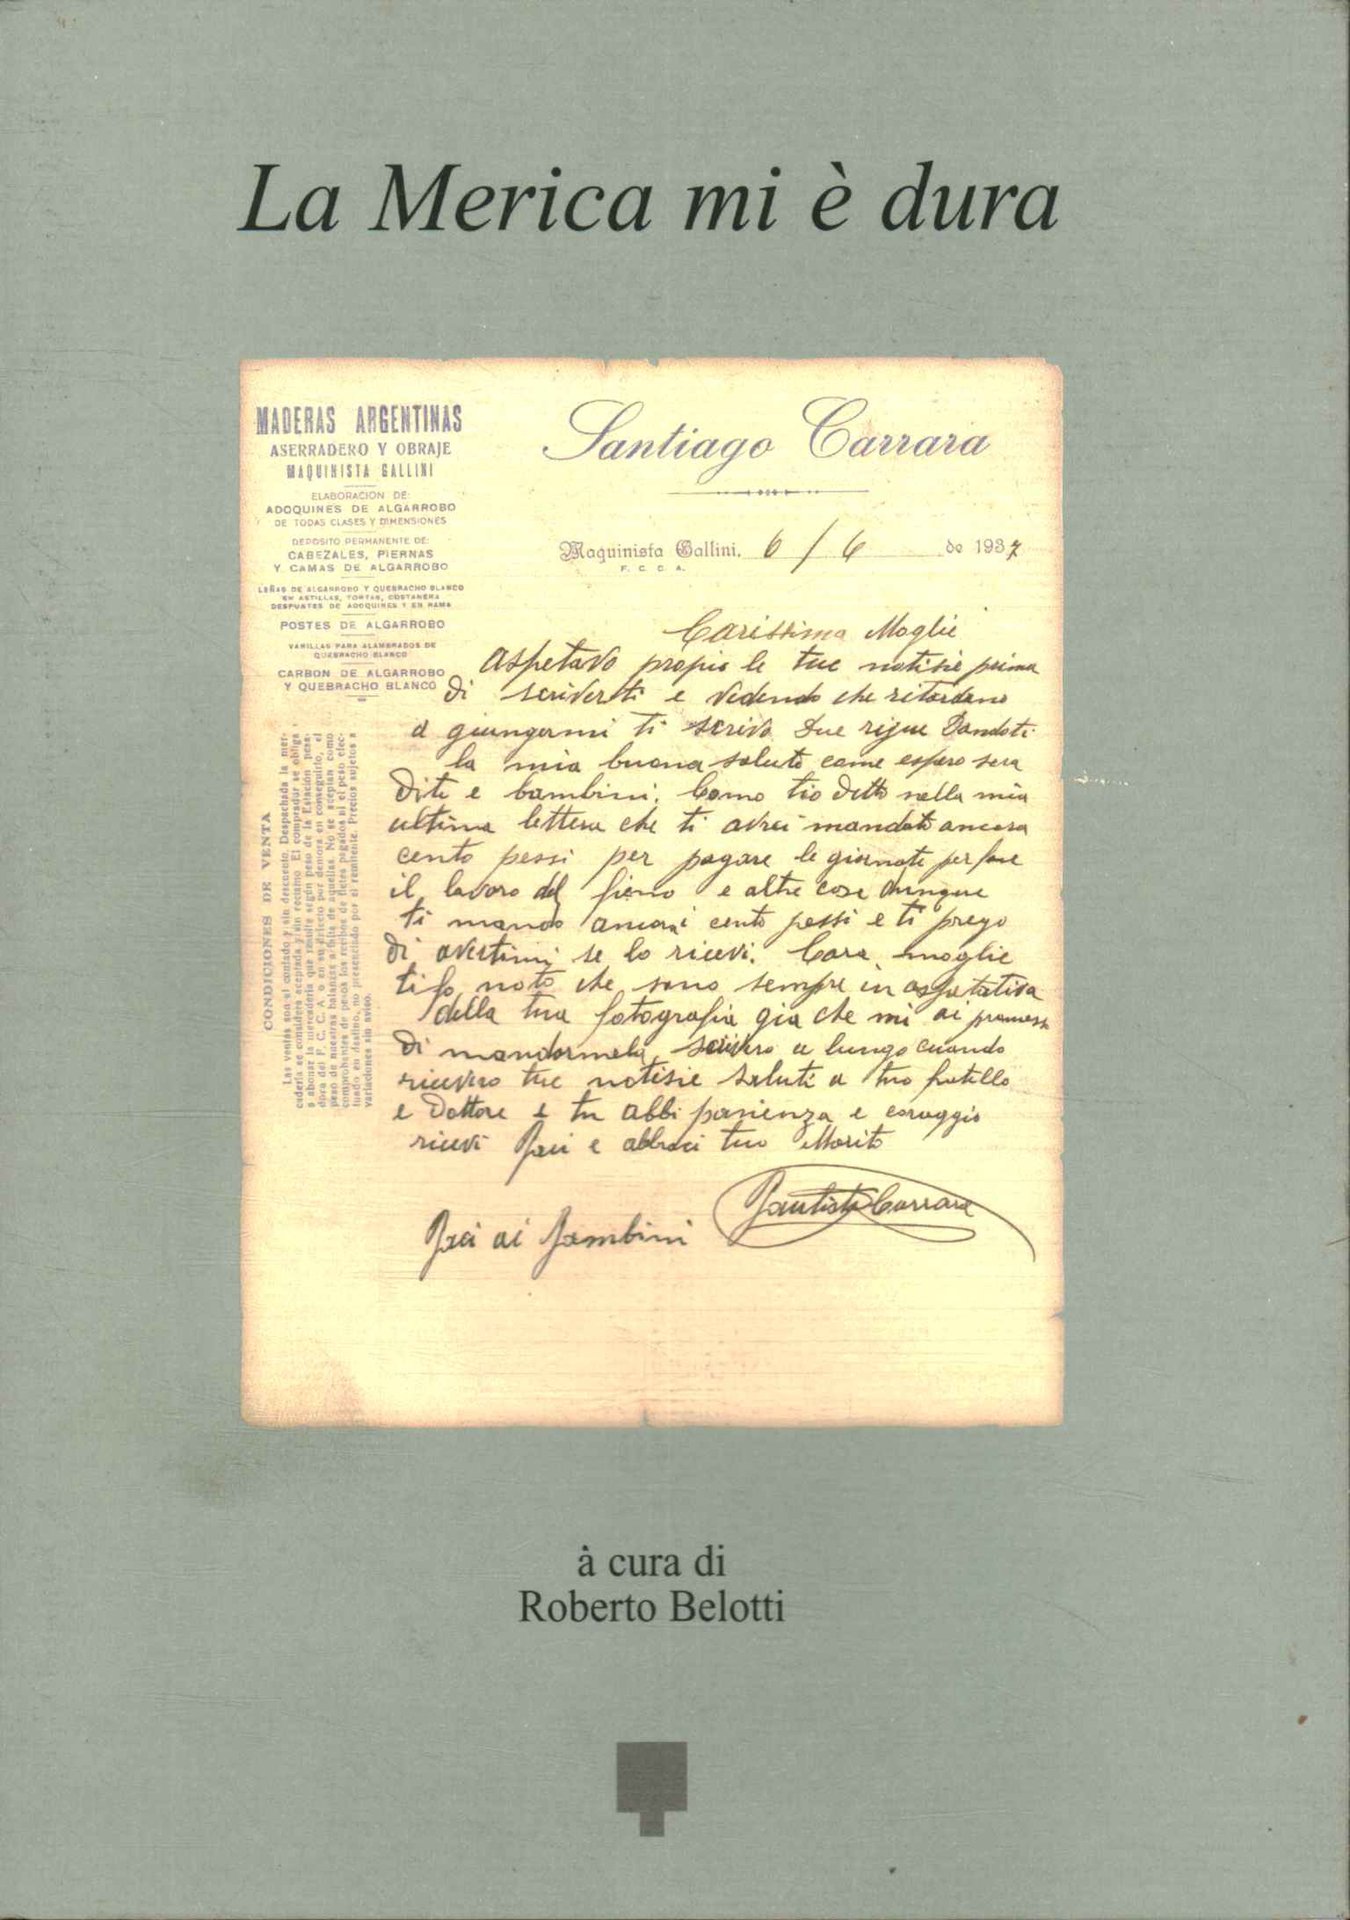 La Merica mi è dura
MADERAS ARGENTINAS
ASERRADERO Y OBRAJE
MAQUINISTA GALLINI
ELABORACION DE:
ADOQUINES DE ALGARROBO
DE TODAS CLASES Y DIMENSIONES
DEPOSITO PERMANENTE DE:
CABEZALES, PIERNAS
Y CAMAS DE ALGARROBO
LEÑAS DE ALGARROBO Y QUEBRACHO BLANCO
EN ASTILLAS, TORTAS, COSTANERA
DESPUNTES DE ADOQUINES Y EN RAMA
POSTES DE ALGARROBO
VARILLAS PARA ALAMBRADOS DE
QUEBRACHO BLANCO
CARBON DE ALGARROBO
Y QUEBRACHO BLANCO
CONDICIONES DE VENTA
Las ventas son al contado y sin descuento. Despachada la mer-
cadería se considera aceptada y sin reclamo. El comprador se obliga
a abonar la mercadería que resulte según peso de la Estación pesa-
dora del F. C. C. A. o en su defecto por demora en conseguirlo, el
peso de nuestras balanzas a falta de aquellas. No se aceptan como
comprobantes de pesos los recibos de fletes pagados ni el peso efec-
tuado en destino, no presenciado por el remitente. Precios sujetos a
variaciones sin aviso.
Santiago Carrara
Maquinista Gallini, 6/6 de 1937
F. C. C. A.
Carissima Moglie
Aspetavo propio le tue notisie prima
di scriverti e vedendo che ritardano
a giungermi ti scrivo due rigue dandoti
la mia buona salute come espero sera
di te e bambini. Como tio detto nella mia
ultima lettera che ti avrei mandato ancora
cento pessi per pagare le giornate per fare
il lavoro del fieno e altre cose dunque
ti mando ancora cento pessi e ti prego
di avertimi se lo ricevi. Cara moglie
ti fo noto che sono sempre in aspetativa
della tua fotografia gia che mi ai promess
di mandarmela, scrivero a lungo cuando
ricevero tue notisie saluti a tuo fratello
e Dottore e tu abbi pasienza e coraggio
ricevi baci e abbraci tuo Marito
Bautista Carrara
Baci ai Bambini
à cura di
Roberto Belotti